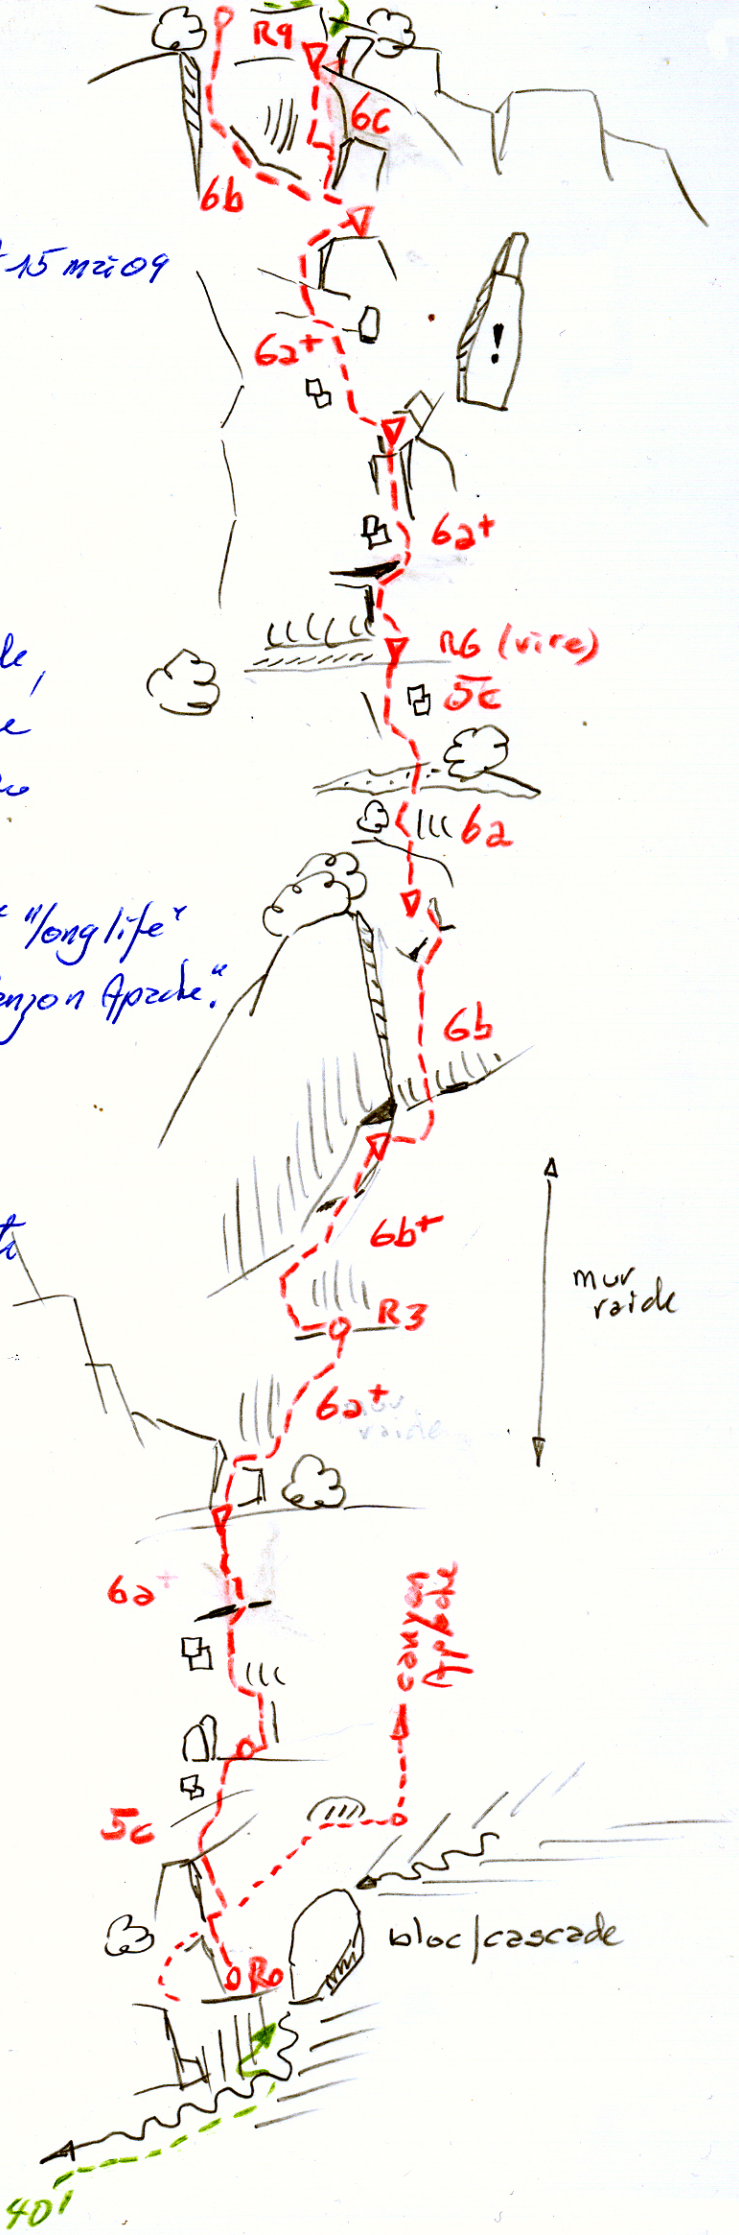 R9
6c
6b
15 mai 09
6a+
!
6a+
R6 (vire)
5c
6a
"long life"
Apache."
6b
6b+
mur
raide
R3
6a+
mur
raide
6a+
canyon
Apache
5c
bloc/cascade
R0
40'